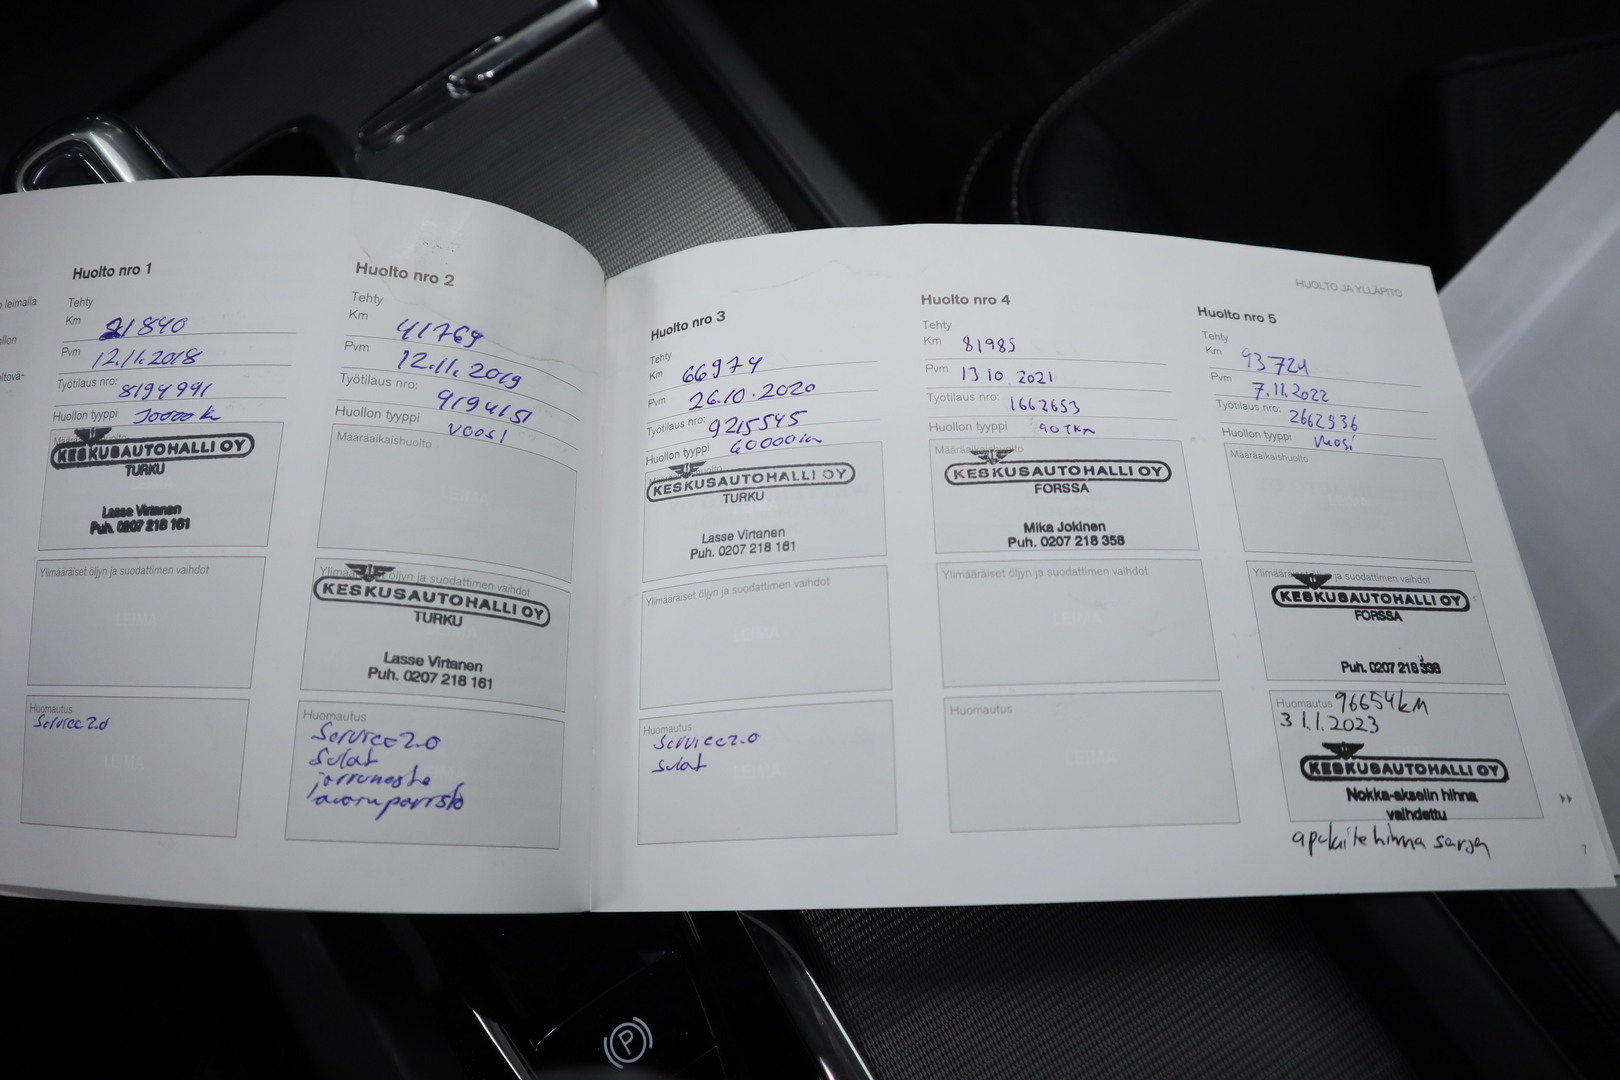 n leimalla
llon
ltövä-
Huolto nro 1
Tehty
Km 21840
Pvm 12.11.2018
Työtilaus nro: 8194991
Huollon tyyppi 30000 km
Määräaikaishuolto
KESKUSAUTOHALLI OY
TURKU
Lasse Virtanen
Puh. 0207 218 161
Ylimääräiset öljyn ja suodattimen vaihdot
LEIMA
Huomautus
Service 2.0
LEIMA
Huolto nro 2
Tehty
Km 41769
Pvm 12.11.2019
Työtilaus nro: 9194151
Huollon tyyppi vuosi
Määräaikaishuolto
Ylimääräiset öljyn ja suodattimen vaihdot
KESKUSAUTOHALLI OY
TURKU
Lasse Virtanen
Puh. 0207 218 161
Huomautus
Service 2.0
sulat
jarruneste
Huolto nro 3
Tehty
Km 66974
Pvm 26.10.2020
Työtilaus nro: 9215545
Huollon tyyppi 60000 km
KESKUSAUTOHALLI OY
TURKU
Lasse Virtanen
Puh. 0207 218 161
Ylimääräiset öljyn ja suodattimen vaihdot
LEIMA
Huomautus
Service 2.0
sulat
LEIMA
HUOLTO JA YLLÄPITO
Huolto nro 4
Tehty
Km 81985
Pvm 13 10 2021
Työtilaus nro: 1662653
Huollon tyyppi 90 TKM
Määräaikaishuolto
KESKUSAUTOHALLI OY
FORSSA
Mika Jokinen
Puh. 0207 218 358
Ylimääräiset öljyn ja suodattimen vaihdot
LEIMA
Huomautus
Huolto nro 5
Tehty
Km 93724
Pvm 7.11.2022
Työtilaus nro: 2662936
Huollon tyyppi vuosi
Määräaikaishuolto
Ylimääräiset öljyn ja suodattimen vaihdot
KESKUSAUTOHALLI OY
FORSSA
Puh. 0207 218
Huomautus 96654 km
31.1.2023
KESKUSAUTOHALLI OY
Nokka-akselin hihna
vaihdettu
apulaite hihna sarja
7
P